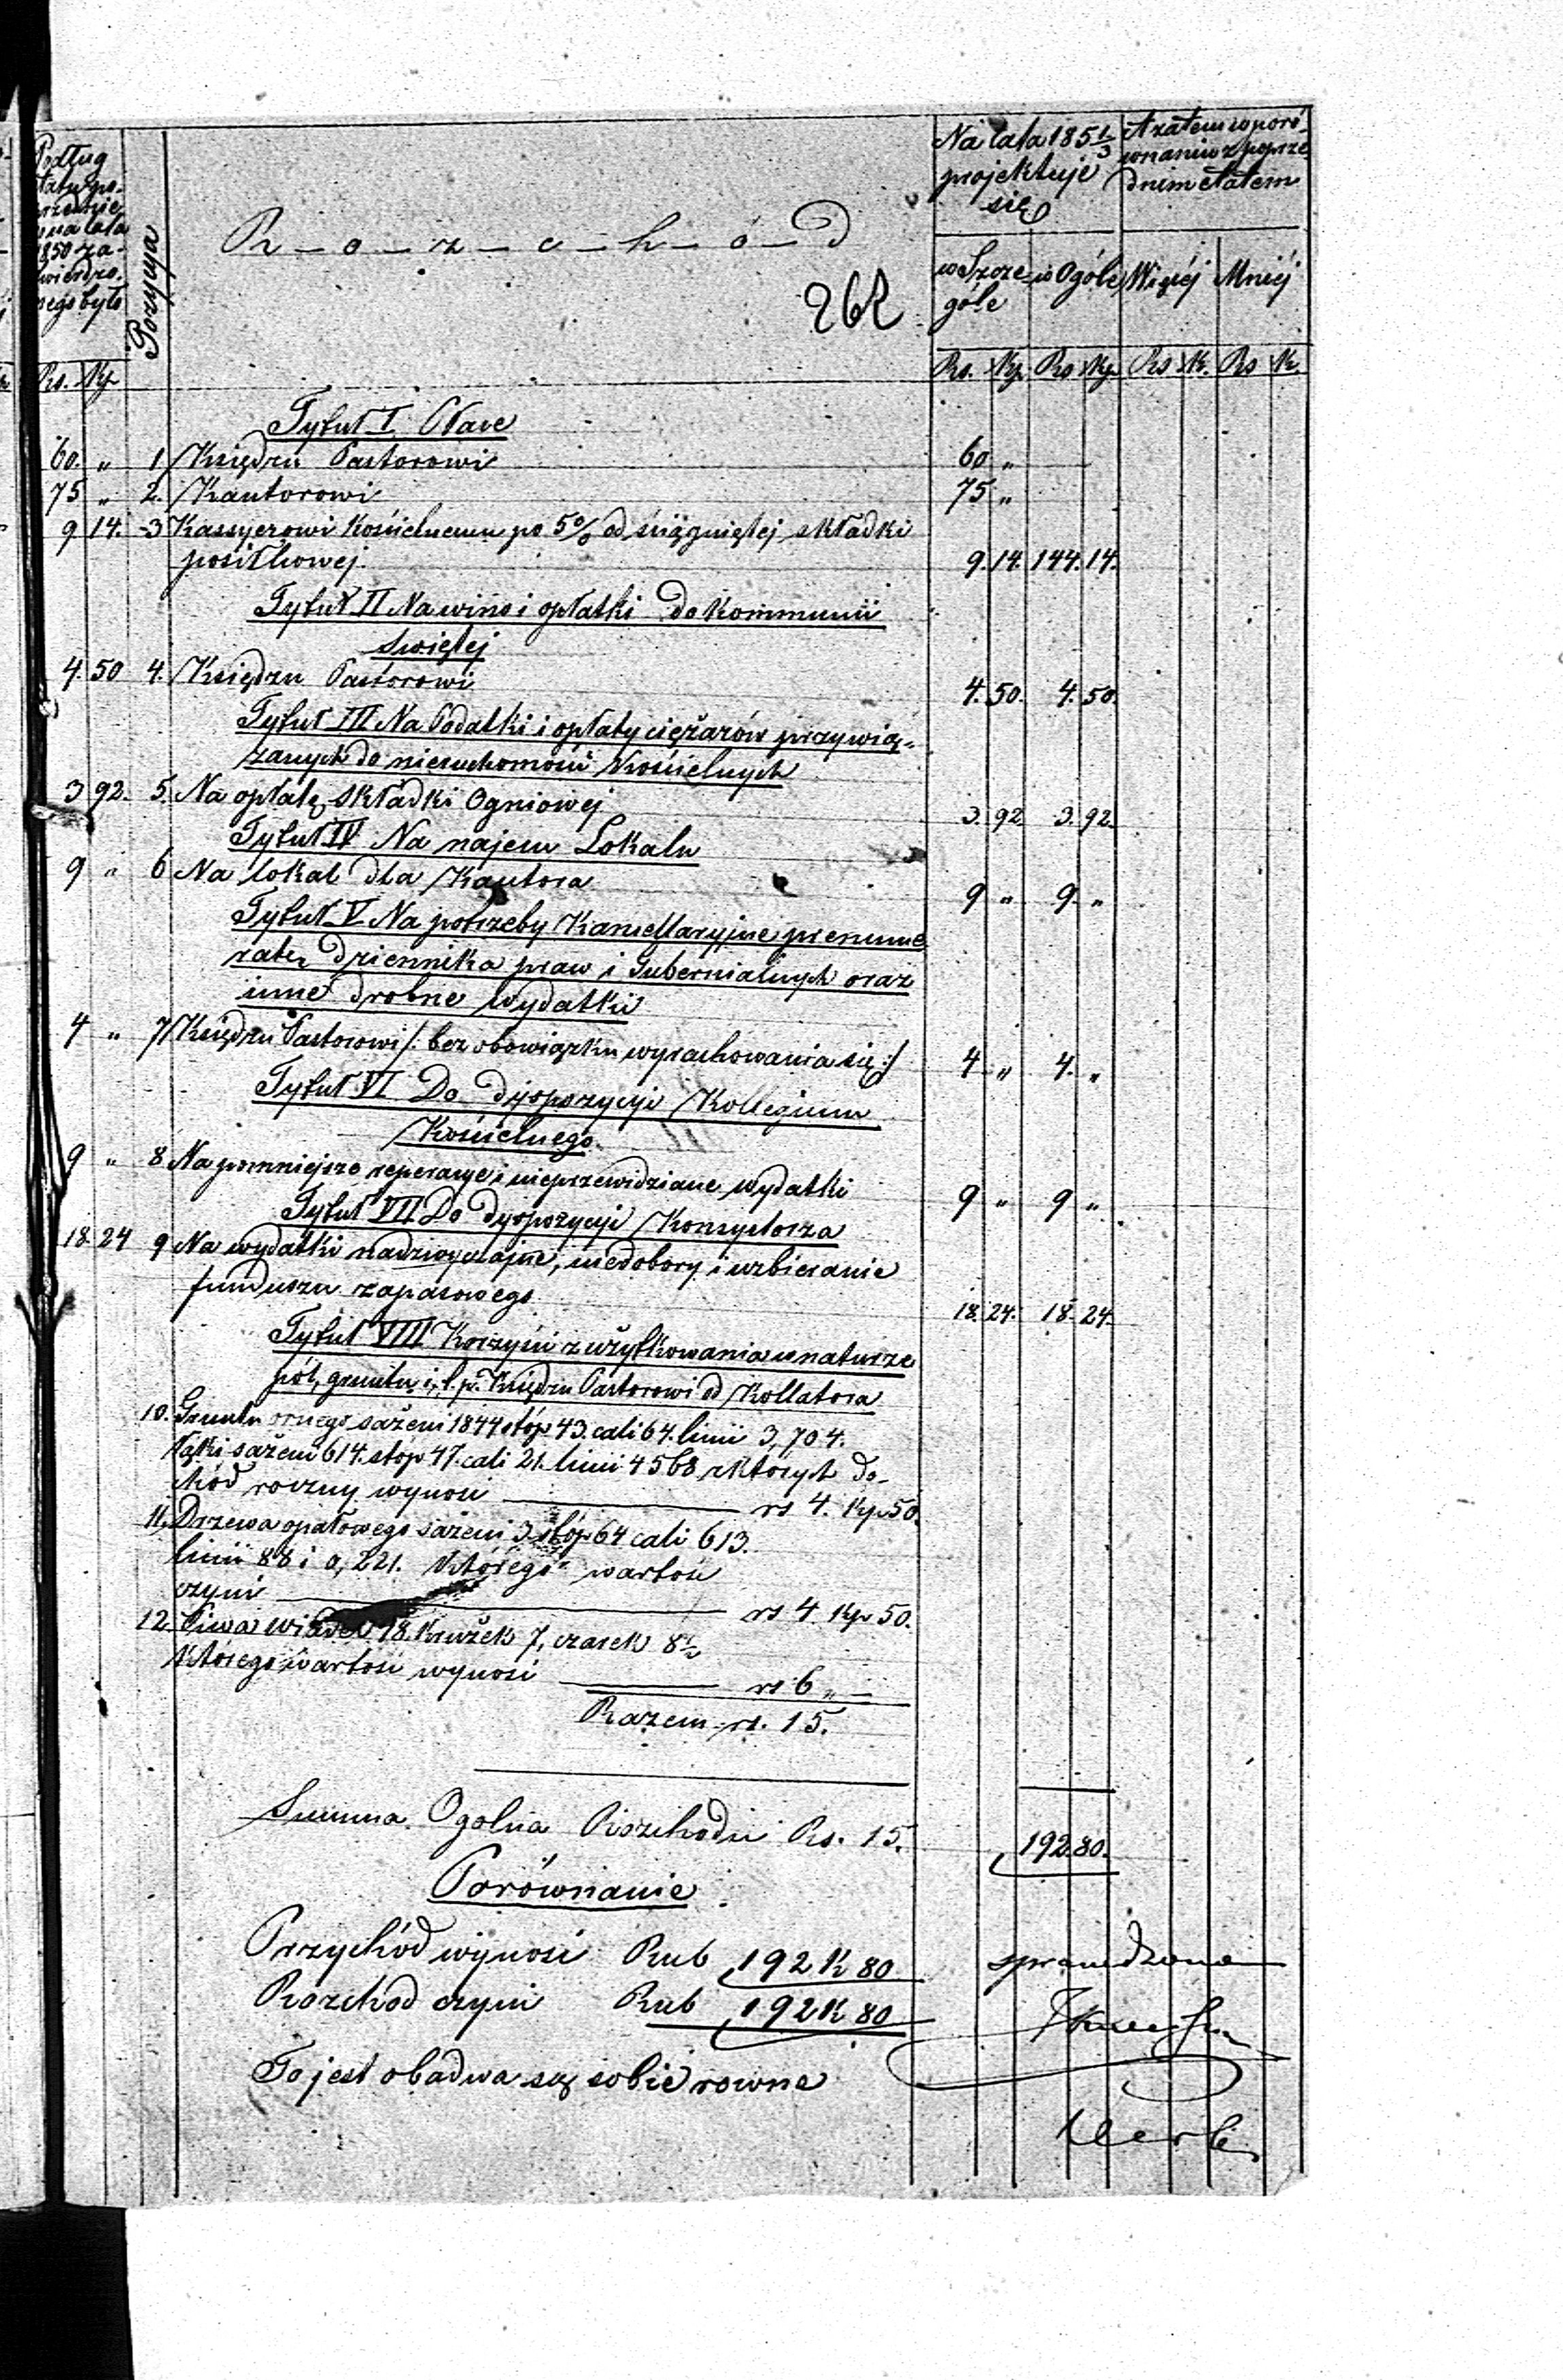 Podług
etatu po-
przednie
na lata
1850 za-
twierdzo-
nego było
Pozycya
R-o-z-c-h-ó-d
262
Na lata 185 1/3
projektuje
się
A zatem w poró-
wnaniu z poprze-
dnim etatem
w Szcze-
góle
w Ogóle
Więcéj
Mniéj
Rs. Kp
Rs. Kp. Rs Kp. Rs K. Rs K.
Tytuł I. Płace
60. „ 1 Księdzu Pastorowi 60 „
75 „ 2. Kantorowi 75 „
9 14. 3 Kassyerowi Kościelnemu po 5% od ściągniętej składki
posiłkowej. 9. 14. 144. 14.
Tytuł II Na wino i opłatki do Kommunii
Swiętej
4. 50 4. Księdzu Pastorowi 4. 50. 4. 50.
Tytuł III Na Podatki i opłaty ciężarów przywią-
zanych do nieruchomości Kościelnych
3 92. 5. Na opłatę składki Ogniowej 3. 92. 3. 92.
Tytuł IV Na najem Lokalu
9 „ 6 Na lokal dla Kantora 9 „ 9. „
Tytuł V. Na potrzeby Kancellaryjne prenume
ratę dziennika praw i Gubernialnych oraz
inne drobne wydatki
4 „ 7 Księdzu Pastorowi /: bez obowiązku wyrachowania się :/ 4 „ 4. „
Tytuł VI Do dyspozycyi Kollegium
Kościelnego.
9 „ 8 Na pomniejsze reperacye i nieprzewidziane wydatki 9 „ 9 „
Tytuł VII Do dyspozycyi Konsystorza
18. 24 9 Na wydatki nadzwyczajne, niedobory i uzbieranie
funduszu zapasowego 18. 24. 18. 24.
Tytuł VIII Korzyści z użytkowania w naturze
pól, gruntu i t. p. Księdzu Pastorowi od Kollatora
10. Gruntu ornego sażeni 1844 stóp 43. cali 64. linii 3,704.
łąki sażeni 614. stop 47. cali 21. linii 4568 z których do-
chód roczny wynosi rs 4. Kp 50.
11. Drzewa opałowego sażeni 3. stóp 64 cali 613.
linii 88 i 0,221. Którego wartość
czyni rs 4. Kp 50.
12. Piwa wiader 18. Krużek 7, czarek 8½
Którego wartość wynosi rs 6 „
Razem rs. 15.
Summa Ogolna Rozchodu Rs. 15. 192. 80.
Porównanie
Przychód wynosi Rub 192 K 80
Rozchod czyni Rub 192 K 80
To jest obadwa są sobie rowne
sprawdzono